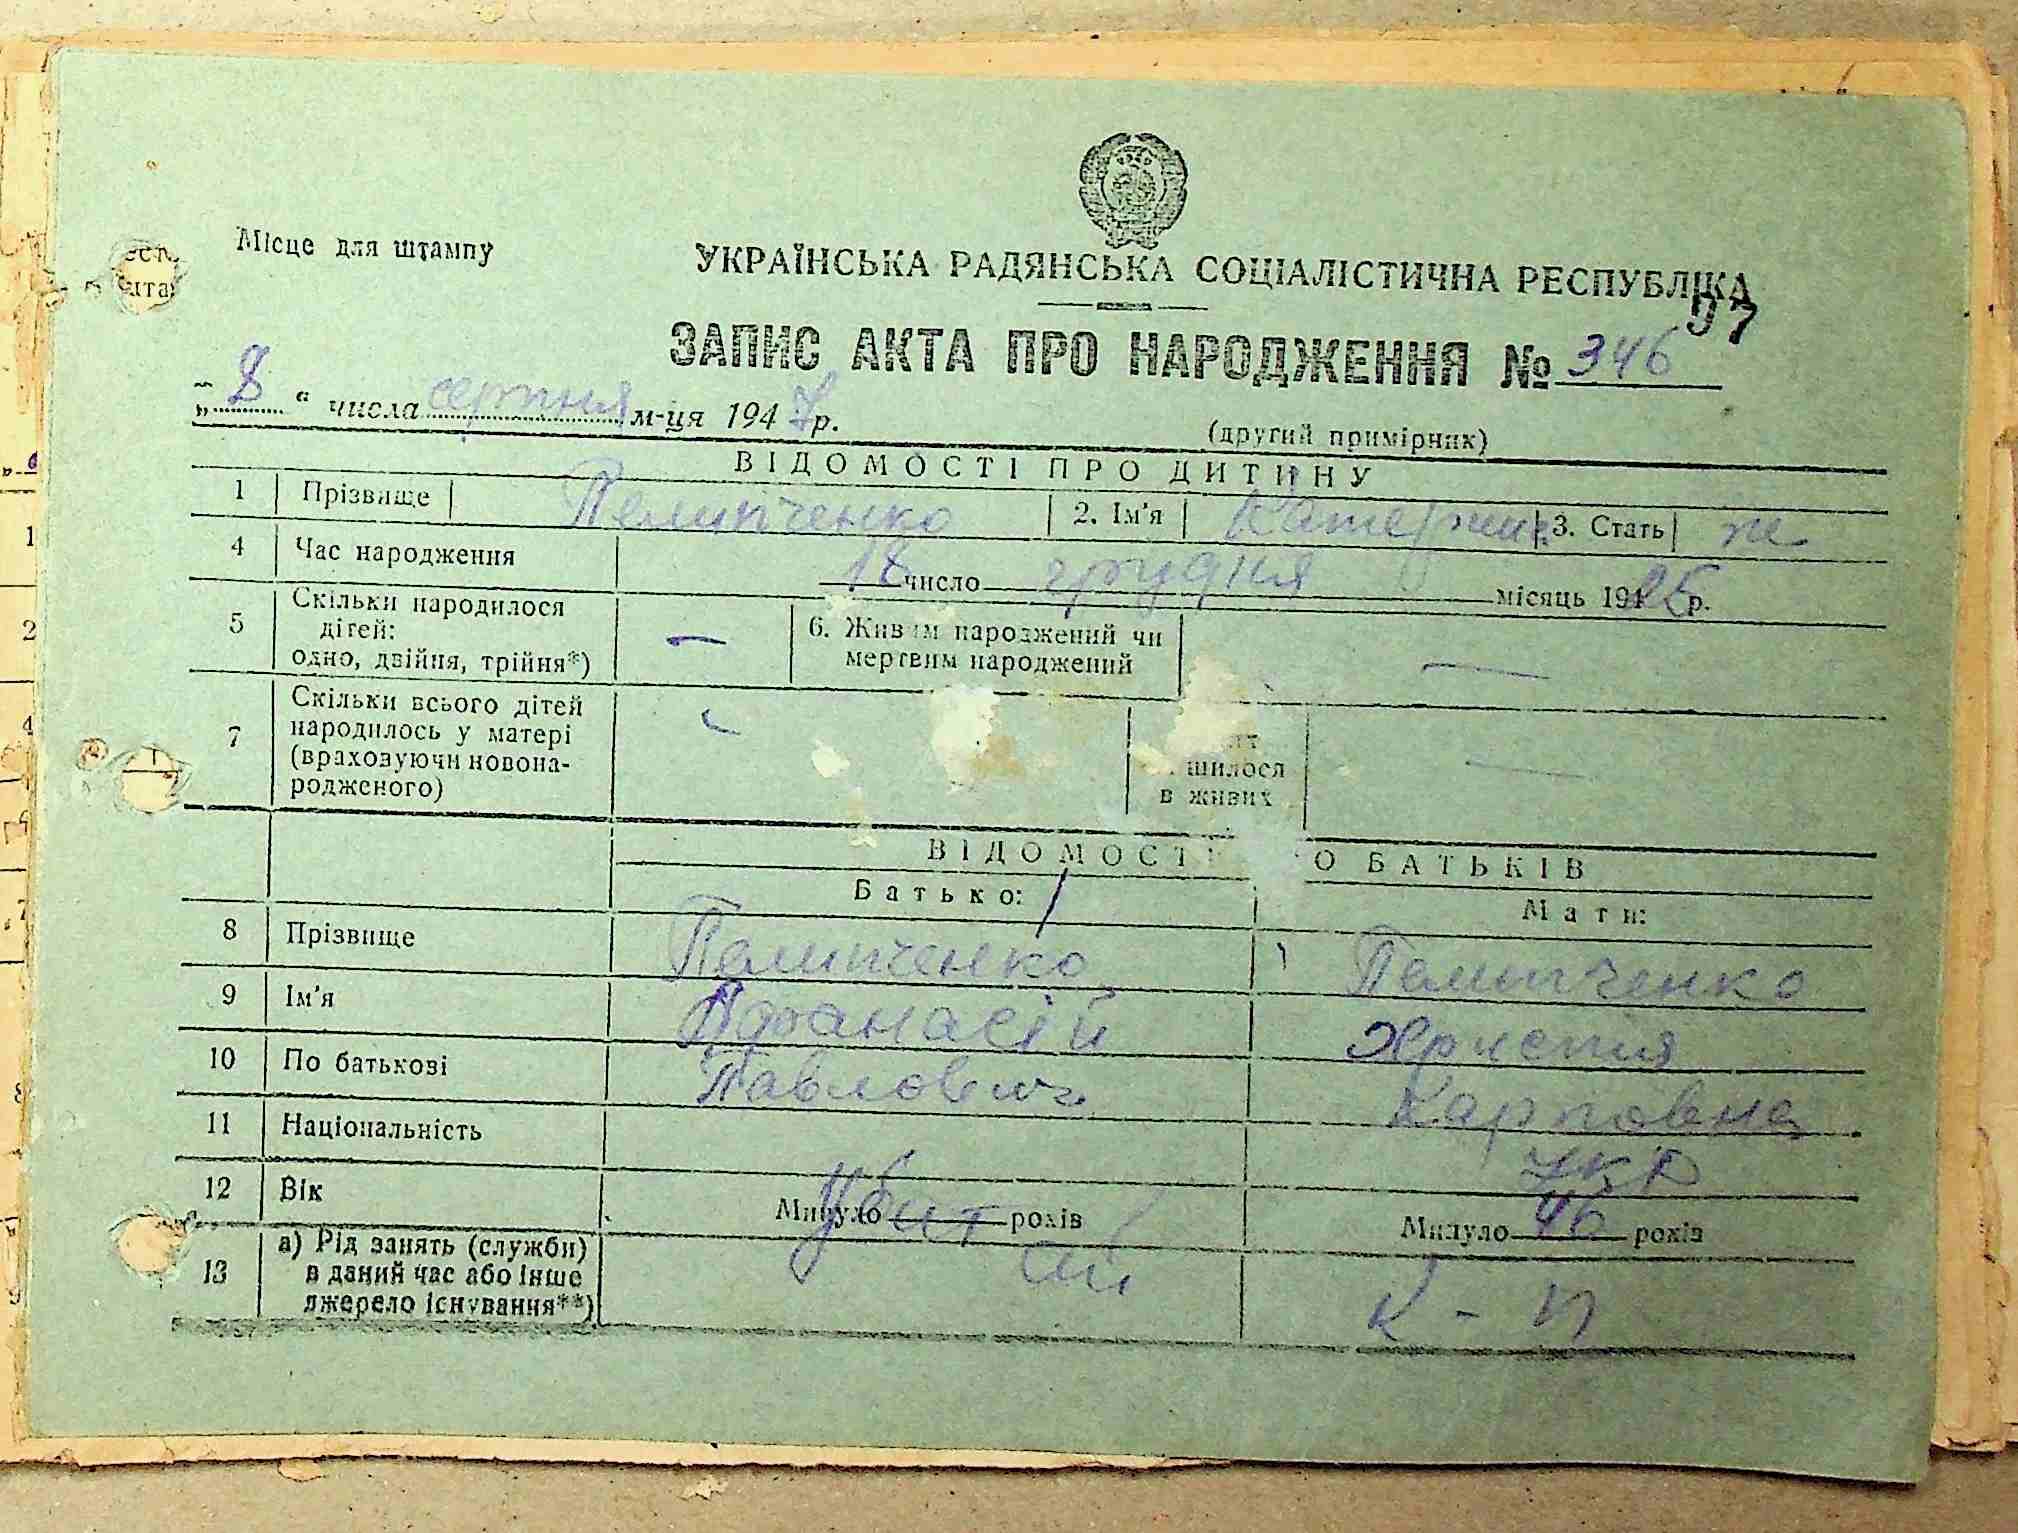 Місце для штампу
УКРАЇНСЬКА РАДЯНСЬКА СОЦІАЛІСТИЧНА РЕСПУБЛІКА
ЗАПИС АКТА ПРО НАРОДЖЕННЯ № 346
„8“ числа серпня м-ця 1947 р.
(другий примірник)
ВІДОМОСТІ ПРО ДИТИНУ
1 Прізвище Пелипченко 2. Ім'я Катерина 3. Стать ж
4 Час народження 18 число грудня місяць 1925 р.
5 Скільки народилося дітей: одно, двійня, трійня*) — 6. Живим народжений чи мертвим народжений —
7 Скільки всього дітей народилось у матері (враховуючи новонародженого) - шилося в живих —
ВІДОМОСТ О БАТЬКІВ
Батько: Мати:
8 Прізвище Пелипченко Пелипченко
9 Ім'я Афанасій Христия
10 По батькові Павлович Карповна
11 Національність укр
12 Вік Минуло убит років Минуло 46 років
13 а) Рід занять (служби) в даний час або інше джерело існування**) к-п